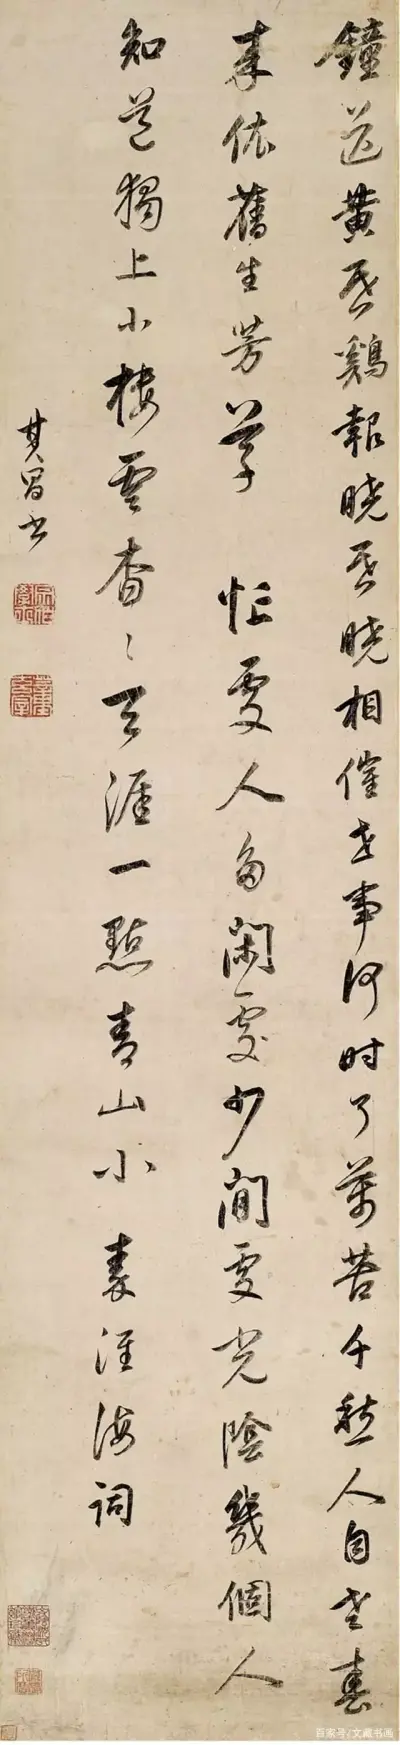 鐘送黃昏鷄報曉昏曉相催世事何時了萬苦千愁人自老春
來依舊生芳草 忙處人多閑處少閒處光陰幾個人
知道獨上小樓雲杳〻天涯一點青山小 秦淮海詞
其昌書
百家号/文藏书画